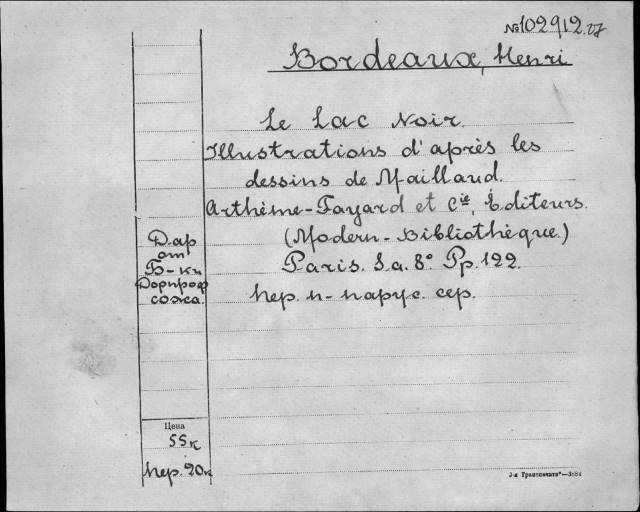 №102912.27
Bordeaux, Henri
Le Lac Noir.
Illustrations d'après les
dessins de Maillaud.
Arthème-Fayard et Cie, Editeurs.
(Modern-Bibliothèque.)
Paris. S.a. 8° Pp. 122.
пер. п-парус. сер.
Дар
от
Б-ки
Дорпроф
сожа.
Цена
55к
пер. 20к